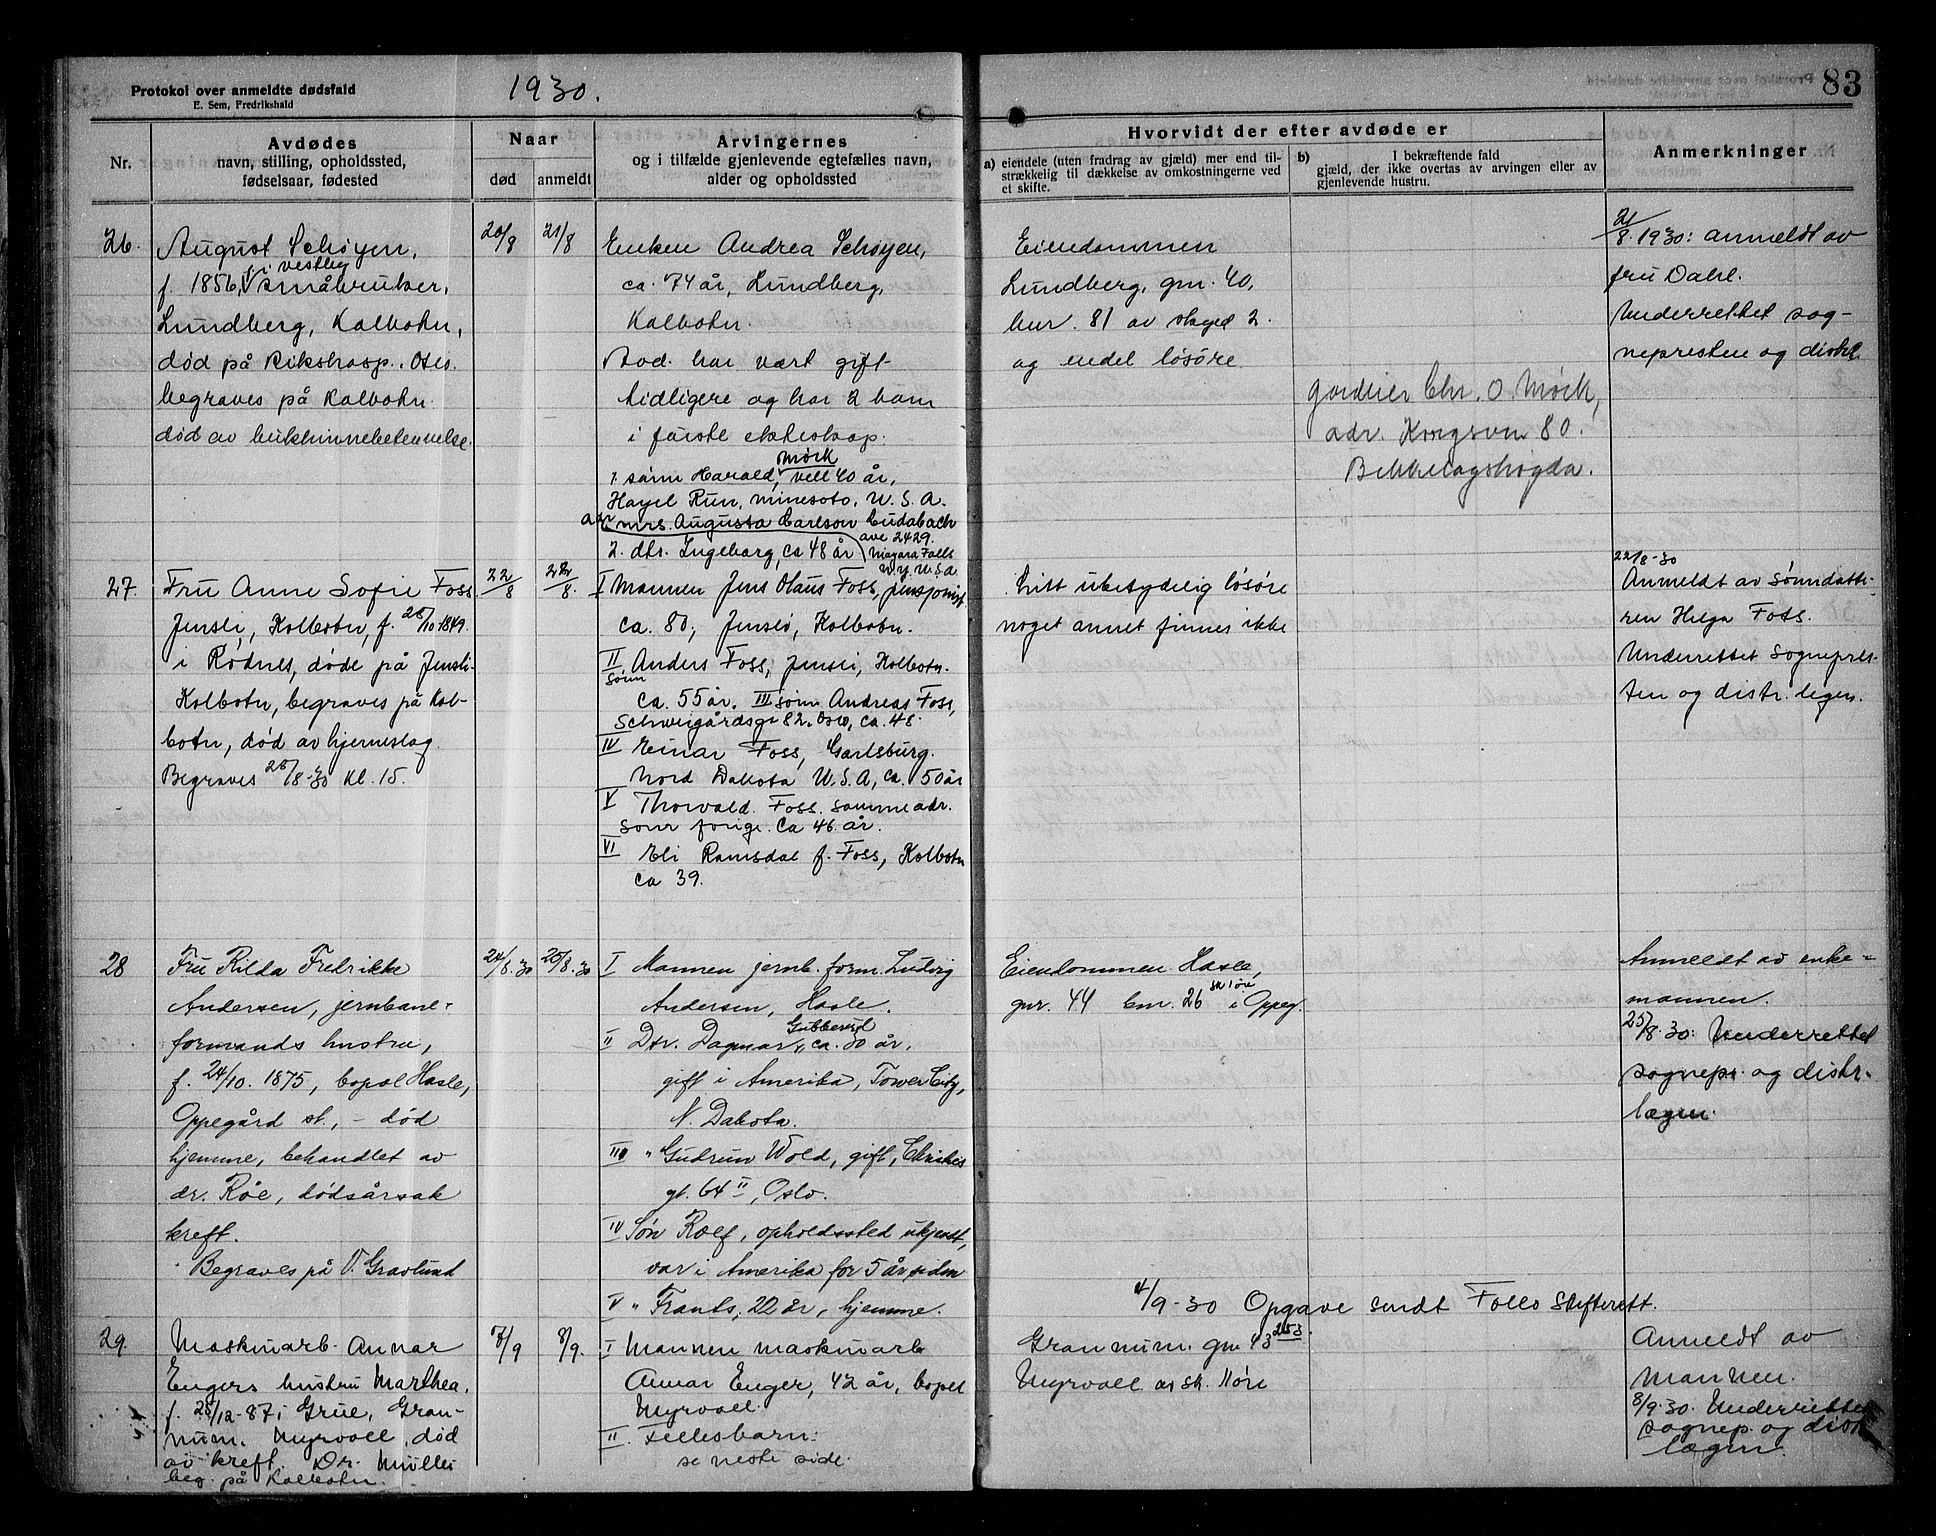 Protokol over anmeldte dødsfald
E. Sem, Fredrikshald
1930.
83
Nr.
Avdødes
navn, stilling, opholdssted,
fødselsaar, fødested
Naar
død
anmeldt
Arvingernes
og i tilfælde gjenlevende egtefælles navn,
alder og opholdssted
Hvorvidt der efter avdøde er
a) eiendele (uten fradrag av gjæld) mer end til-
strækkelig til dækkelse av omkostningerne ved
et skifte.
b) I bekræftende fald
gjæld, der ikke overtas av arvingen eller av
gjenlevende hustru.
Anmerkninger
26.
August Schøyen,
f. 1856, i vestby
småbruker,
Lundberg, Kolbotn,
død på Rikshosp. Oslo.
begraves på Kolbotn.
død av bukhinnebetennelse.
20/8
21/8
Enken Andrea Schøyen,
ca. 74 år, Lundberg,
Kolbotn.
Avd. har vært gift
tidligere og har 2 barn
i første ekteskap:
1. sønn Harald Mørk, vell 40 år,
Hayel Run, minesoto, U.S.A.
adr. mrs. Augusta Carlson Cudabach
ave 2429.
Niagara Falls
N.Y. U.S.A
2. dtr. Ingeborg, ca 48 år
Eiendommen
Lundberg, gnr. 40,
bnr. 81 av skyld 2.
og endel løsøre.
Chr. O. Mørk,
adr. Kongsvn 80.
Bekkelagshøgda.
21/8. 1930: anmeldt av
fru Dahl.
Underrettet sog-
nepresten og distrl.
27.
Fru Anne Sofie Foss
Jensli, Kolbotn, f. 26/10 1849.
i Rødnes, døde på Jensli
Kolbotn, begraves på Kol-
botn, død av hjerneslag.
Begraves 26/8-30 Kl. 15.
22/8
22/8.
I Mannen Jens Olaus Foss, pensjonist
ca. 80, Jensli, Kolbotn.
II Anders Foss, Jensli, Kolbotn.
sønn
ca. 55 år. III sønn Andreas Foss,
Schweigårdsgt 82. Oslo, ca. 48.
IV Einar Foss, Garlsburg.
Nord Dakota U.S.A, ca. 50 år
V Thorvald. Foss. samme adr.
som forige. ca 46. år.
VI Eli Ramsdal f. Foss, Kolbotn
ca 39.
Litt ubetydelig løsøre
noget annet finnes ikke
22/8-30
Anmeldt av sønndatte-
ren Helga Foss.
Underrettet Sognepres-
ten og distr. legen.
28
Fru Rilda Fredrikke
Andersen, jernbane-
formands hustru,
f. 24/10. 1875, bopæl Hasle,
Oppegård st., - død
hjemme, behandlet av
dr. Röe, dødsårsak
kreft.
Begraves på V. Gravlund
24/8.30
25/8.30
I Mannen jernb. form. Ludvig
Andersen, Hasle.
II Dtr. Dagmar Gubberud, ca. 30 år,
gift i Amerika, Tower City,
N. Dakota.
III " Gudrun Wold, gift, Christies
gt. 64 II, Oslo.
IV Søn Rolf, opholdssted ukjendt,
var i Amerika for 5 år siden
V " Frants, 22 år, hjemme.
Eiendommen Hasle,
gnr. 44 bnr. 26 i Oppeg.
Anmeldt av enke-
mannen.
25/8.30: Underrettet
sognepr. og distr.
lægen.
4/9-30 Opgave sendt Follo Skifterett.
29.
Maskinarb. Annar
Engers hustru Marthea,
f. 28/12-87 i Grue, Gran-
num. Myrvoll, død
av kreft. Dr. Müller
beg. på Kolbotn.
7/9
8/9.
I Mannen maskinarb
Annar Enger, 42 år, bopel
Myrvoll.
II. Fellesbarn:
se neste side.
Grannum. gnr. 43 253.
Myrvoll av sk. 11 øre
Anmeldt av
mannen.
8/9.30. Underrettet
sognep. og distr
lægen.